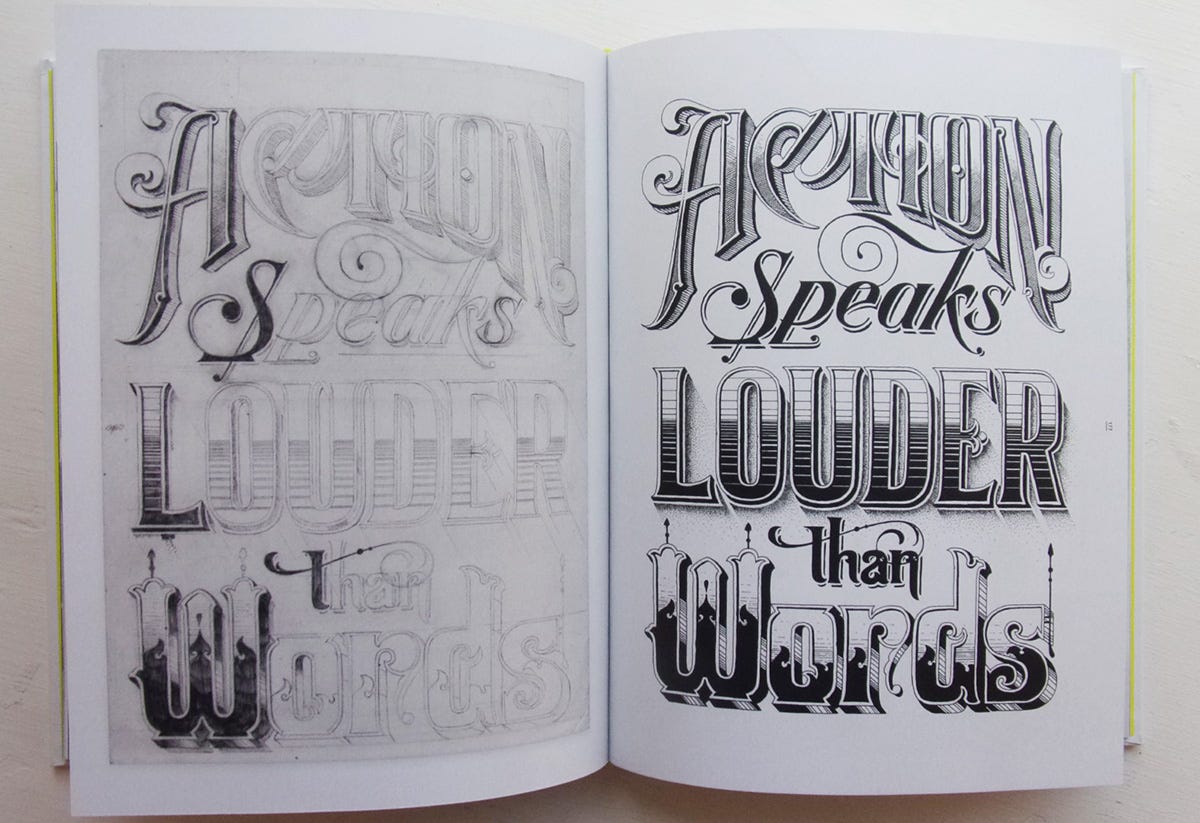 ACTION
Speaks
LOUDER
than
Words
ACTION
Speaks
LOUDER
than
Words